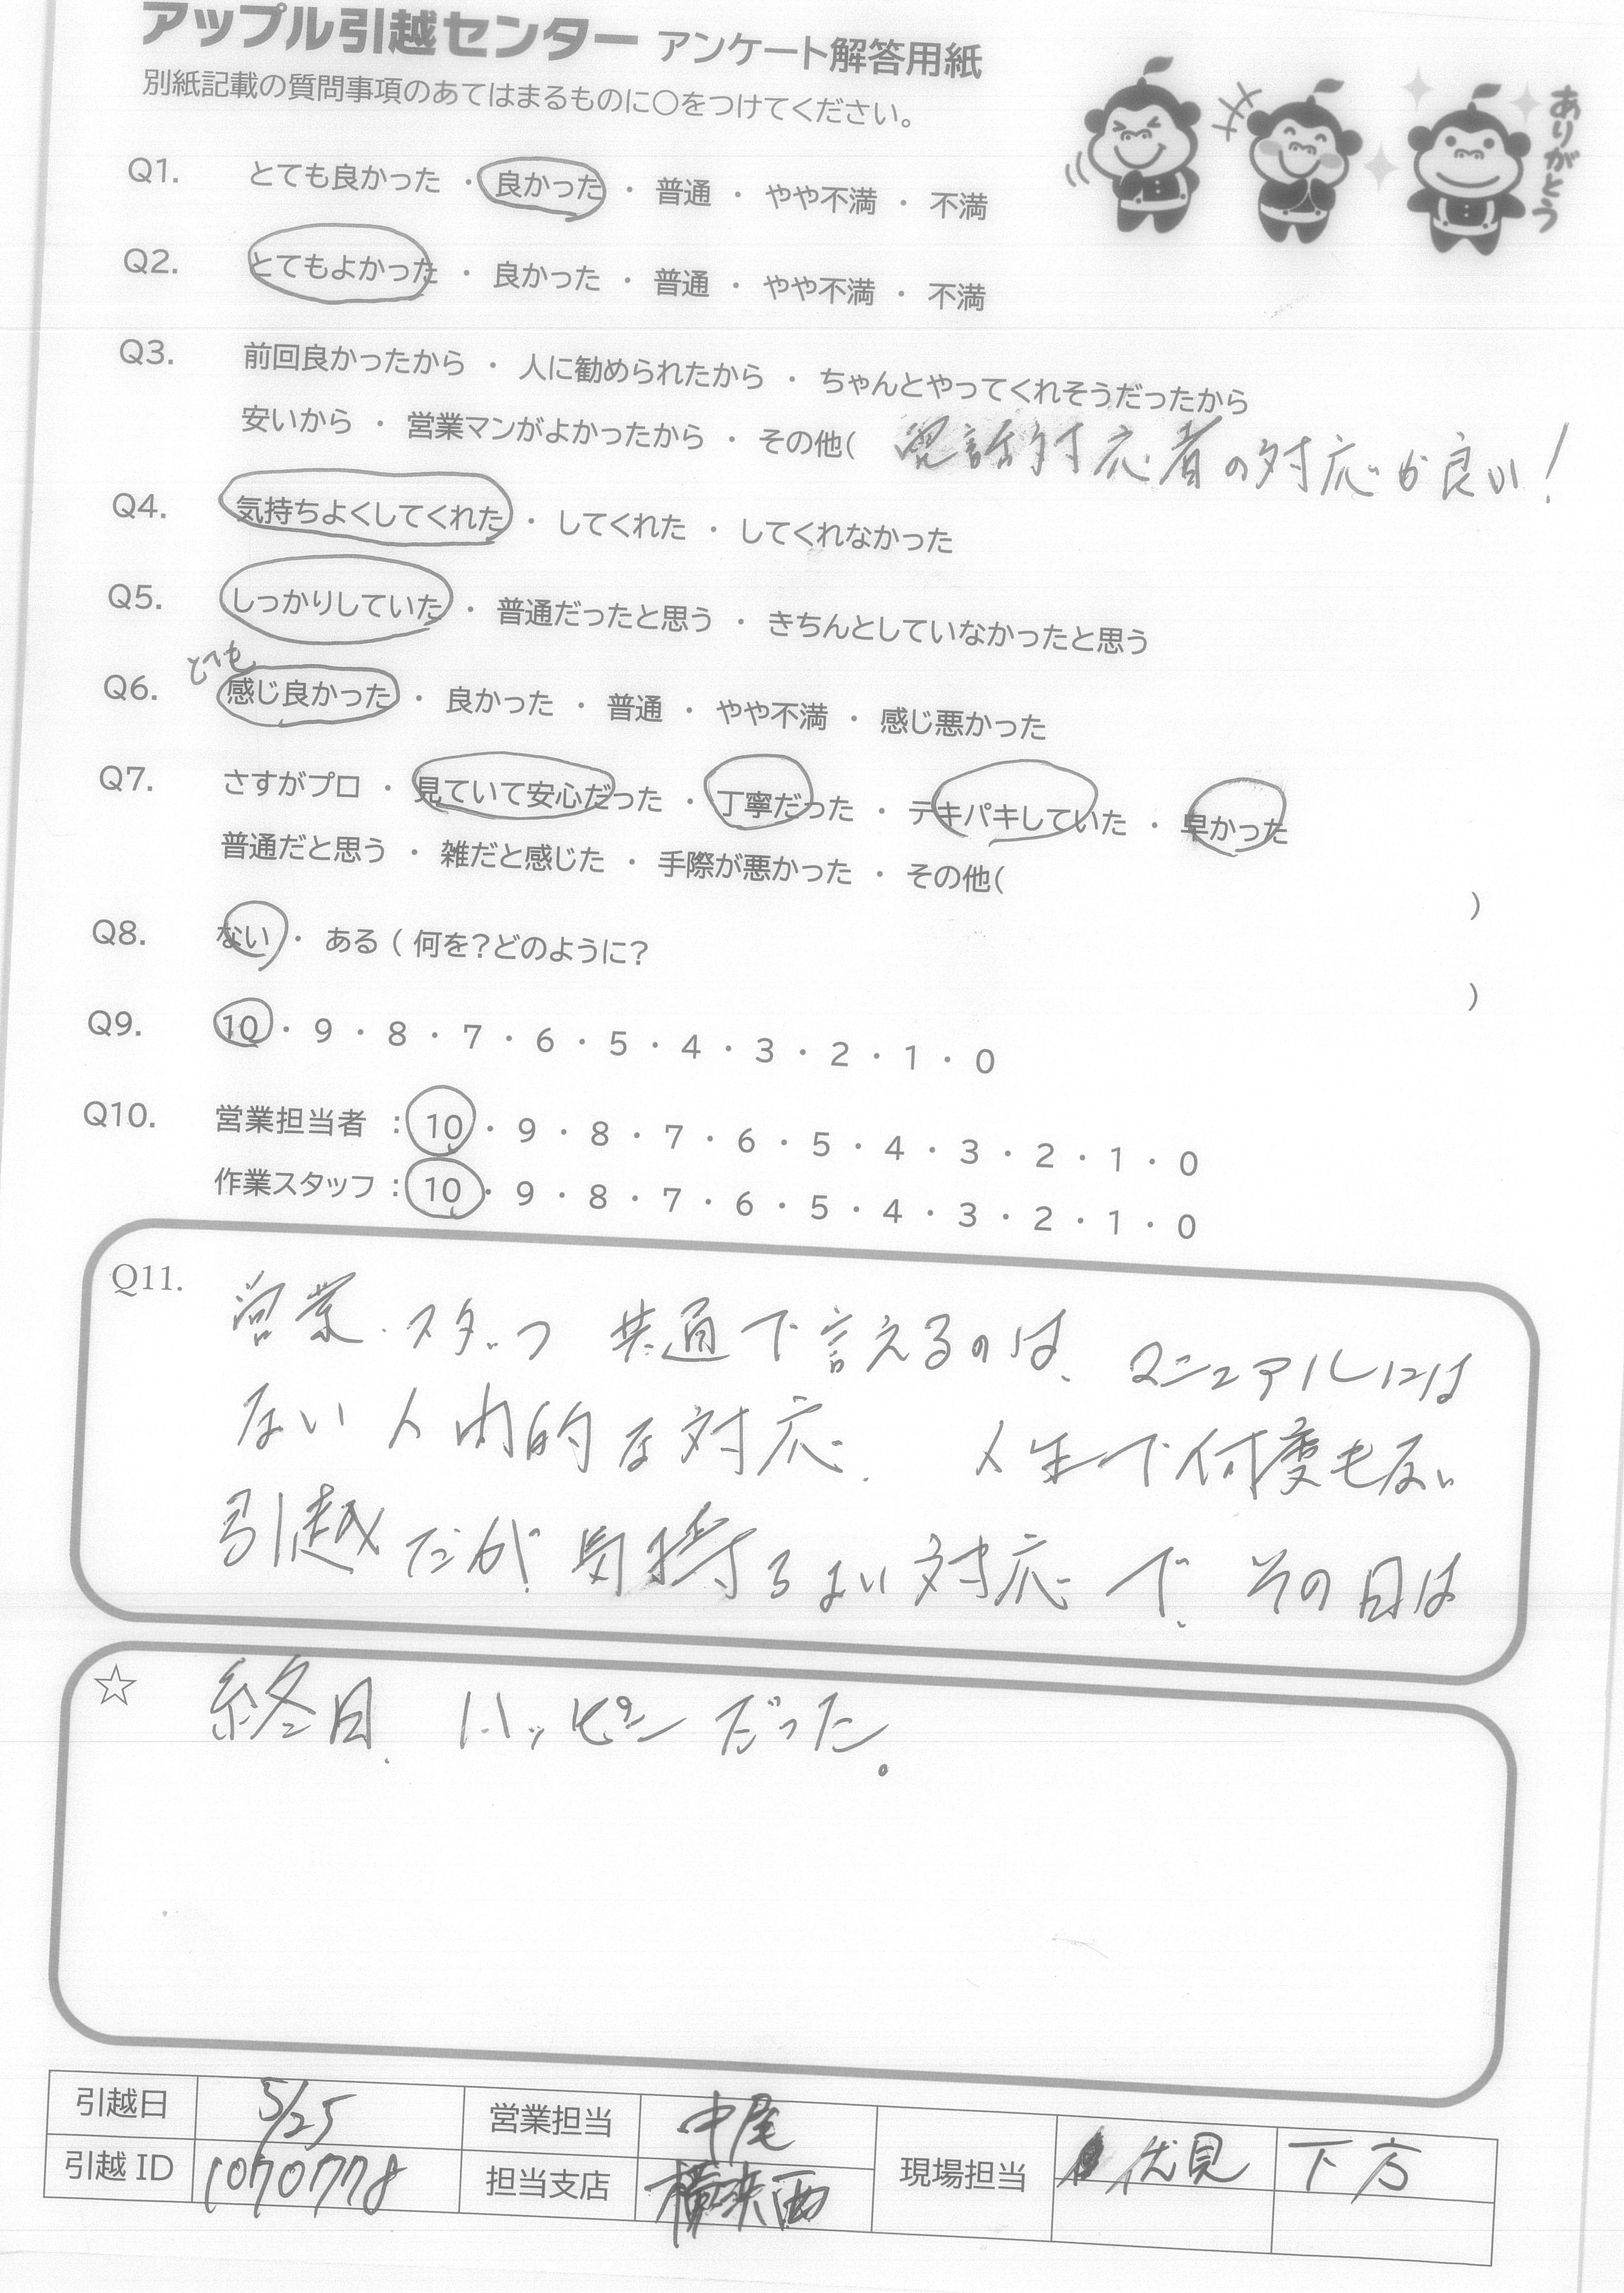 アップル引越センター アンケート解答用紙
別紙記載の質問事項のあてはまるものに〇をつけてください。
ありがとう
Q1. とても良かった ・ 良かった ・ 普通 ・ やや不満 ・ 不満
Q2. とてもよかった ・ 良かった ・ 普通 ・ やや不満 ・ 不満
Q3. 前回良かったから ・ 人に勧められたから ・ ちゃんとやってくれそうだったから
安いから ・ 営業マンがよかったから ・ その他( 電話対応者の対応が良い!
Q4. 気持ちよくしてくれた ・ してくれた ・ してくれなかった
Q5. しっかりしていた ・ 普通だったと思う ・ きちんとしていなかったと思う
とても
Q6. 感じ良かった ・ 良かった ・ 普通 ・ やや不満 ・ 感じ悪かった
Q7. さすがプロ ・ 見ていて安心だった ・ 丁寧だった ・ テキパキしていた ・ 早かった
普通だと思う ・ 雑だと感じた ・ 手際が悪かった ・ その他( )
Q8. ない ・ ある ( 何を?どのように? )
Q9. 10 ・ 9 ・ 8 ・ 7 ・ 6 ・ 5 ・ 4 ・ 3 ・ 2 ・ 1 ・ 0
Q10. 営業担当者 : 10 ・ 9 ・ 8 ・ 7 ・ 6 ・ 5 ・ 4 ・ 3 ・ 2 ・ 1 ・ 0
作業スタッフ : 10 ・ 9 ・ 8 ・ 7 ・ 6 ・ 5 ・ 4 ・ 3 ・ 2 ・ 1 ・ 0
Q11. 営業・スタッフ 共通で言えるのは、マニュアルには
ない人間的な対応。 人生で何度もない
引越だが、気持ちよい対応で、その日は
☆ 終日、ハッピーだった。
引越日 5/25 営業担当 中尾 現場担当 伏見 下方
引越 ID 1070778 担当支店 横浜西